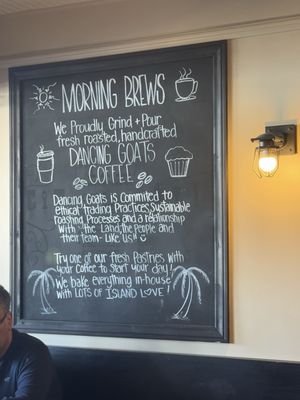 MORNING BREWS
We Proudly Grind + Pour
fresh roasted, handcrafted
DANCING GOATS
COFFEE
Dancing Goats is Commited to
ethical trading Practices, Sustainable
roasting Processes and a relationship
With the Land, the People and
their team - Like us!!
Try one of our fresh Pastries with
your Coffee to Start your day!
We bake everything in-house
with LOTS OF ISLAND LOVE!